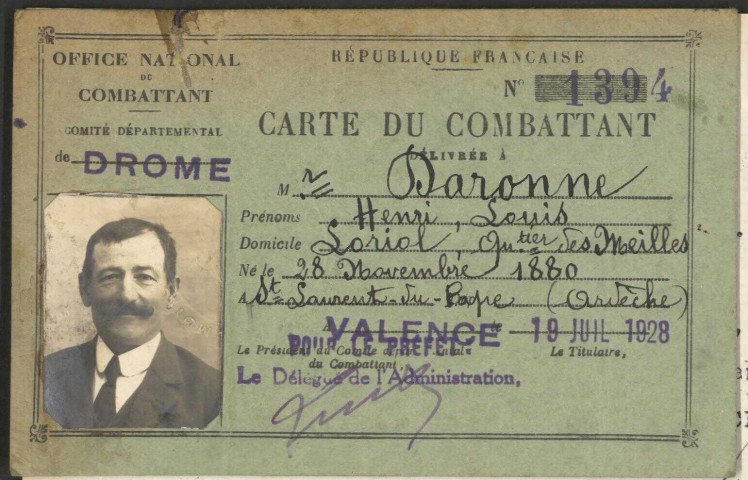 OFFICE NATIONAL
DU
COMBATTANT
COMITÉ DÉPARTEMENTAL
de DROME
RÉPUBLIQUE FRANÇAISE
N° 1394
CARTE DU COMBATTANT
DÉLIVRÉE À
M r Daronne
Prénoms Henri, Louis
Domicile Loriol, Qu.tier des Meilles
Né le 28 Novembre 1880
à St Laurent-du-Pape (Ardèche)
A VALENCE le 19 JUIL 1928
POUR LE PREFET
Le Président du Comité départemental
du Combattant,
Le Titulaire,
Le Délégué de l'Administration,